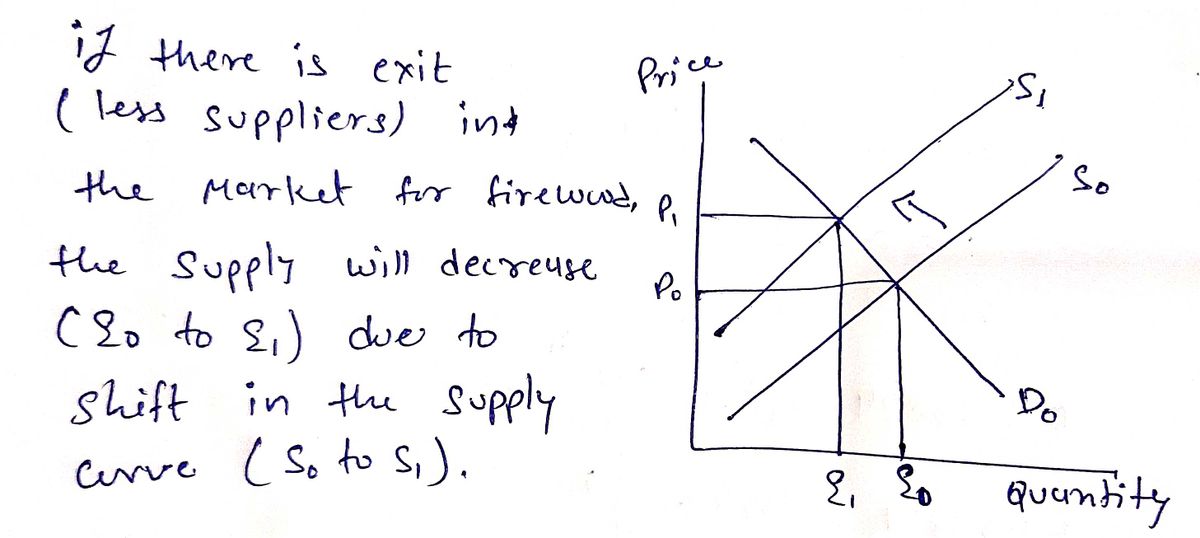 if there is exit
( less suppliers) in
the Market for firewood,
the supply will decrease
(q0 to q1) due to
shift in the supply
curve ( S0 to S1 ).
Price
S1
S0
P1
P0
D0
q1 q0 Quantity